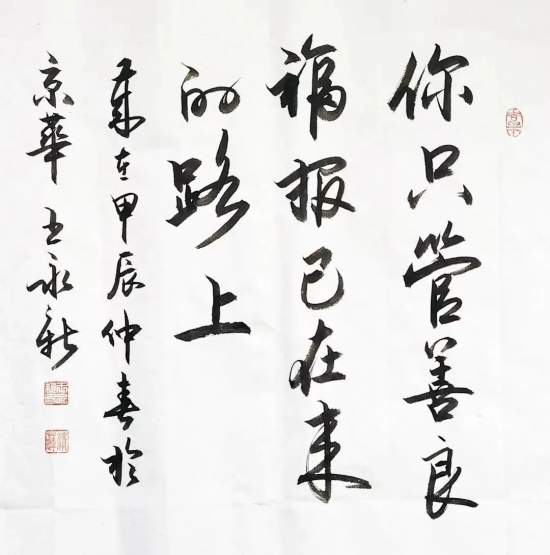 你只管善良
福报已在来
的路上
岁在甲辰仲春於
京華 王永新